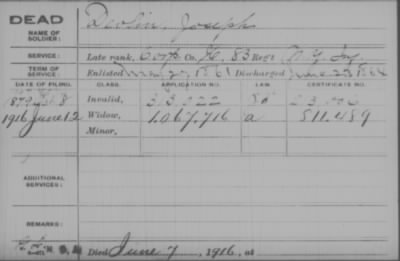 DEAD
NAME OF SOLDIER: Devlin, Joseph
SERVICE: Late rank, Corp Co. H, 83 Regt N.Y. Inf
TERM OF SERVICE: Enlisted May 27 1861 Discharged June 23 1864
DATE OF FILING. CLASS. APPLICATION NO. LAW. CERTIFICATE NO.
Invalid,
1916 June 12 Widow, 1,067,716 a 811.489
Minor,
ADDITIONAL SERVICES:
REMARKS:
Died June 7, 1916, at